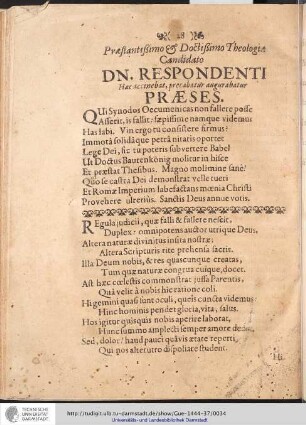 28
Præstantissimo & Doctissimo Theologiæ
Candidato
DN. RESPONDENTI
Hac accinebat, precabatur augurabatur
PRÆSES.
QUi Synodos Oecumenicas non fallere posse
Asserit, is fallit: sæpissime namque videmus
Has labi. Vin ergo tu consistere firmus?
Immotâ solidâque petrâ niatis oportet
Lege Dei, sic tu poteris subvertere Babel
Ut Doctus Bautenkönig molitur in hisce
Et præstat Thesibus. Magno molimine sanè!
Quo se castra Dei demonstrat velle tueri
Et Romæ Imperium labefactans mœnia Christi
Provehere ulterius. Sanctis Deus annue votis.
REgula judicii, quæ falli & fallere nescit,
Duplex: omnipotens auctor utrique Deus,
Altera naturæ divinitus insita nostræ;
Altera Scripturis rite prehensa sacris.
Illa Deum nobis, & res quascunque creatas,
Tum quæ naturæ congrua cuique, docet.
Ast hæc cœlestis commonstrat jussa Parentis,
Quâ velit à nobis hic ratione coli.
Hi gemini quasi sunt oculi, queis cuncta videmus:
Hinc hominis pendet gloria, vita, salus.
Hos igitur quisquis nobis aperire laborat,
Hunc summo amplecti semper amore decet.
Sed, dolor! haud pauci quâvis ætate reperti,
Qui pos alterutro dispoliare student.
Hi
TECHNISCHE
UNIVERSITÄT
DARMSTADT
http://tudigit.ulb.tu-darmstadt.de/show/Gue-1444-37/0034
Universitäts- und Landesbibliothek Darmstadt